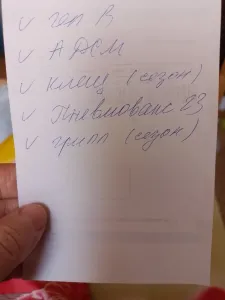 ✓ геп В
✓ АДСМ
✓ клещ (сезон)
а
✓ Пневмовакс 23
✓ грипп (сезон)